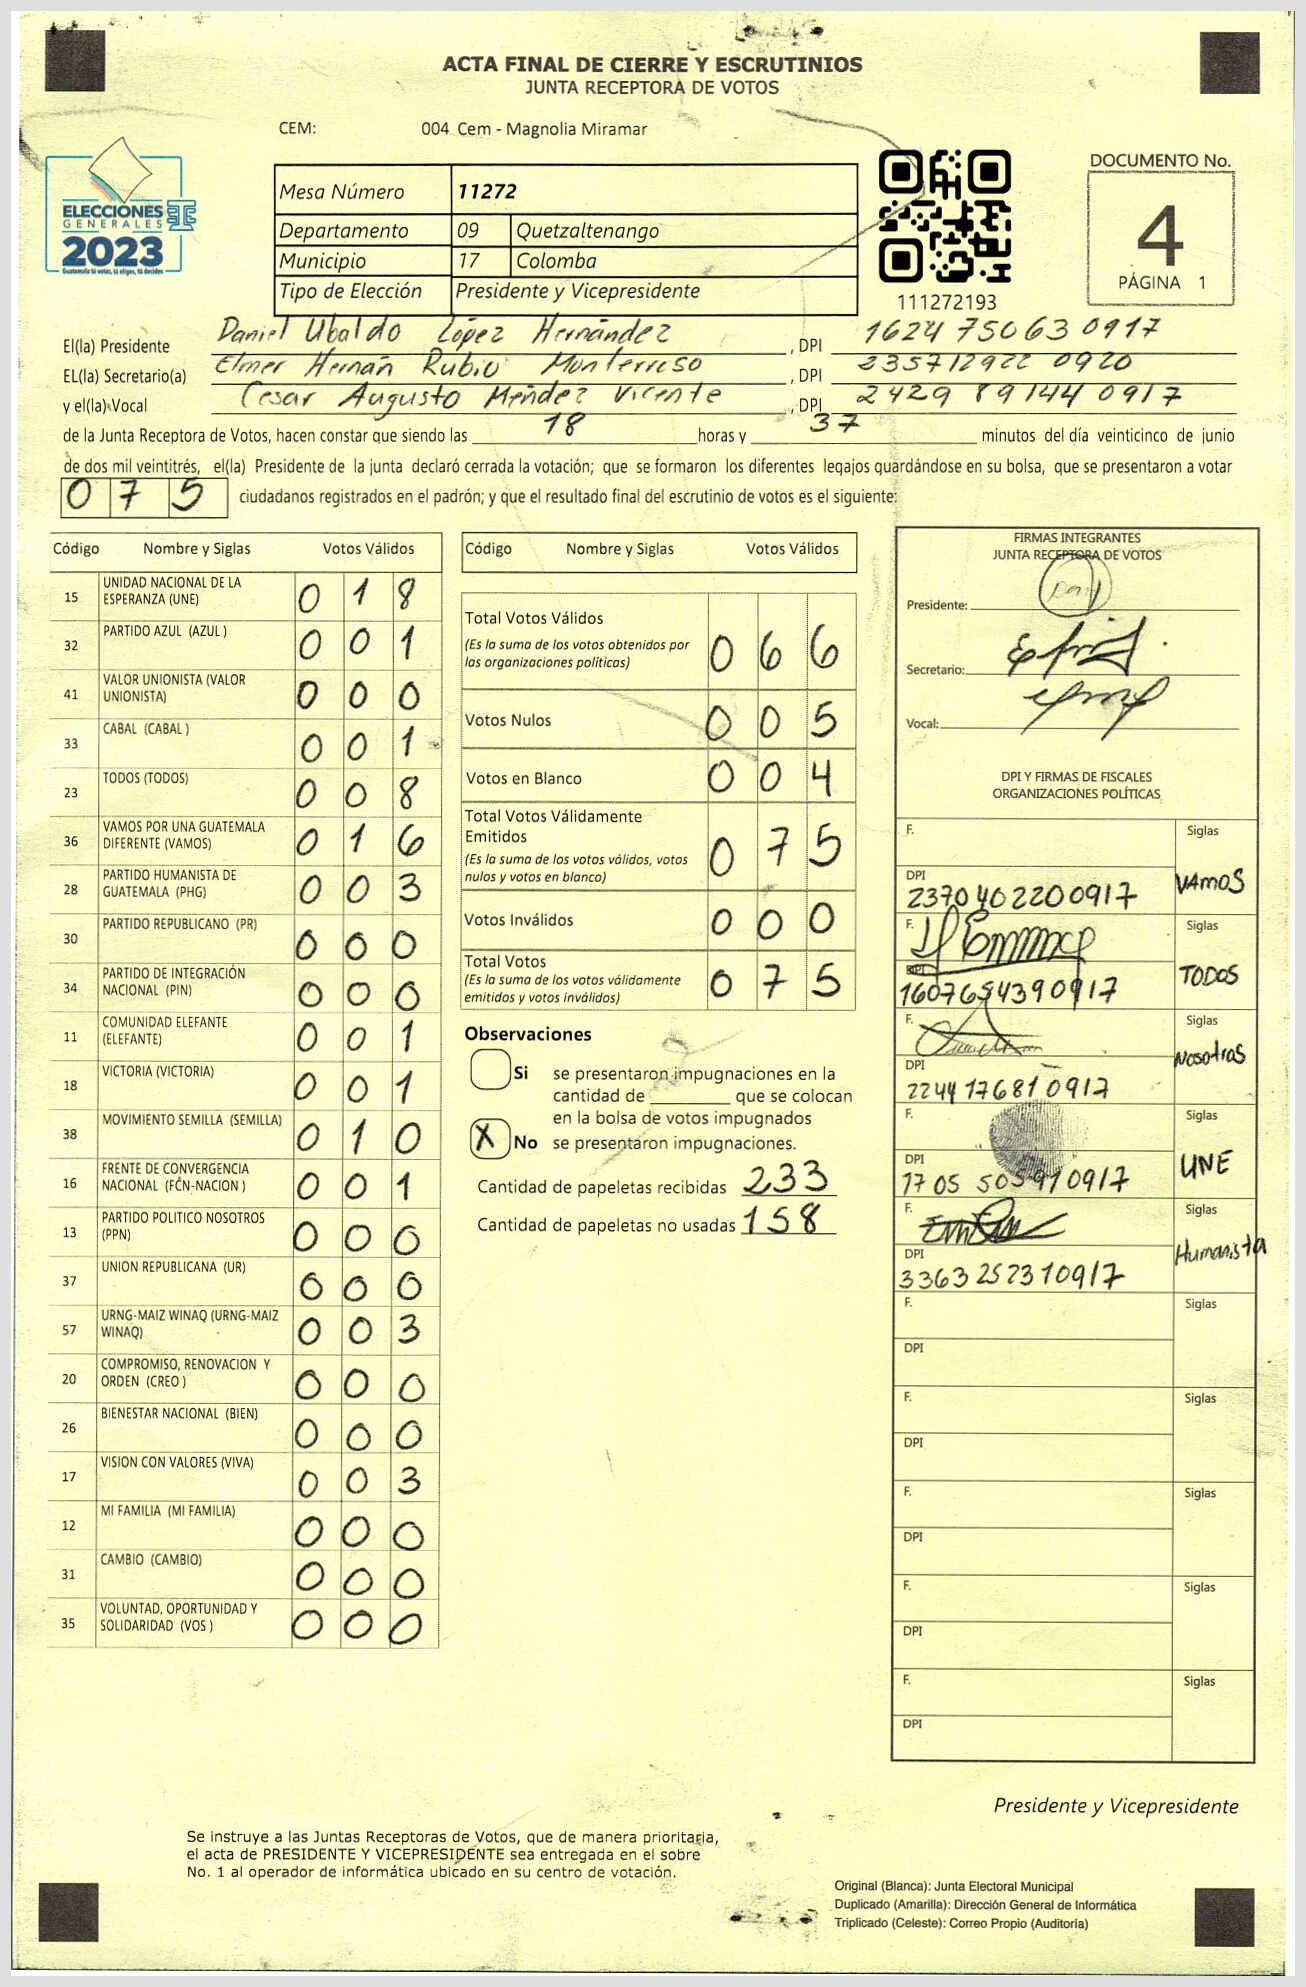 ACTA FINAL DE CIERRE Y ESCRUTINIOS
JUNTA RECEPTORA DE VOTOS
CEM: 004 Cem - Magnolia Miramar
ELECCIONES
GENERALES
2023
Guatemala tú votas, tú eliges, tú decides
Mesa Número 11272
Departamento 09 Quetzaltenango
Municipio 17 Colomba
Tipo de Elección Presidente y Vicepresidente
111272193
DOCUMENTO No.
4
PÁGINA 1
El(la) Presidente Daniel Ubaldo López Hernández , DPI 1624 75063 0917
EL(la) Secretario(a) Elmer Hernán Rubio Monterroso , DPI 235712922 0920
y el(la) Vocal Cesar Augusto Méndez Vicente , DPI 2429 89144 0917
de la Junta Receptora de Votos, hacen constar que siendo las 18 horas y 37 minutos del día veinticinco de junio
de dos mil veintitrés, el(la) Presidente de la junta declaró cerrada la votación; que se formaron los diferentes legajos guardándose en su bolsa, que se presentaron a votar
0 7 5 ciudadanos registrados en el padrón; y que el resultado final del escrutinio de votos es el siguiente:
Código Nombre y Siglas Votos Válidos
15 UNIDAD NACIONAL DE LA ESPERANZA (UNE) 0 1 8
32 PARTIDO AZUL (AZUL ) 0 0 1
41 VALOR UNIONISTA (VALOR UNIONISTA) 0 0 0
33 CABAL (CABAL ) 0 0 1
23 TODOS (TODOS) 0 0 8
36 VAMOS POR UNA GUATEMALA DIFERENTE (VAMOS) 0 1 6
28 PARTIDO HUMANISTA DE GUATEMALA (PHG) 0 0 3
30 PARTIDO REPUBLICANO (PR) 0 0 0
34 PARTIDO DE INTEGRACIÓN NACIONAL (PIN) 0 0 0
11 COMUNIDAD ELEFANTE (ELEFANTE) 0 0 1
18 VICTORIA (VICTORIA) 0 0 1
38 MOVIMIENTO SEMILLA (SEMILLA) 0 1 0
16 FRENTE DE CONVERGENCIA NACIONAL (FCN-NACION ) 0 0 1
13 PARTIDO POLITICO NOSOTROS (PPN) 0 0 0
37 UNION REPUBLICANA (UR) 0 0 0
57 URNG-MAIZ WINAQ (URNG-MAIZ WINAQ) 0 0 3
20 COMPROMISO, RENOVACION Y ORDEN (CREO ) 0 0 0
26 BIENESTAR NACIONAL (BIEN) 0 0 0
17 VISION CON VALORES (VIVA) 0 0 3
12 MI FAMILIA (MI FAMILIA) 0 0 0
31 CAMBIO (CAMBIO) 0 0 0
35 VOLUNTAD, OPORTUNIDAD Y SOLIDARIDAD (VOS ) 0 0 0
Código Nombre y Siglas Votos Válidos
Total Votos Válidos 0 6 6
(Es la suma de los votos obtenidos por
las organizaciones políticas)
Votos Nulos 0 0 5
Votos en Blanco 0 0 4
Total Votos Válidamente
Emitidos 0 7 5
(Es la suma de los votos válidos, votos
nulos y votos en blanco)
Votos Inválidos 0 0 0
Total Votos 0 7 5
(Es la suma de los votos válidamente
emitidos y votos inválidos)
Observaciones
Si se presentaron impugnaciones en la
cantidad de ________ que se colocan
en la bolsa de votos impugnados
X No se presentaron impugnaciones.
Cantidad de papeletas recibidas 233
Cantidad de papeletas no usadas 158
FIRMAS INTEGRANTES
JUNTA RECEPTORA DE VOTOS
Presidente:
Secretario:
Vocal:
DPI Y FIRMAS DE FISCALES
ORGANIZACIONES POLÍTICAS
F. Siglas
DPI VAMOS
2370402200917
F. Siglas
DPI TODOS
1607654390917
F. Siglas
DPI Nosotros
2244176810917
F. Siglas
DPI UNE
1705 505910917
F. Siglas
DPI Humanista
3363252310917
F. Siglas
DPI
F. Siglas
DPI
F. Siglas
DPI
F. Siglas
DPI
F. Siglas
DPI
Presidente y Vicepresidente
Se instruye a las Juntas Receptoras de Votos, que de manera prioritaria,
el acta de PRESIDENTE Y VICEPRESIDENTE sea entregada en el sobre
No. 1 al operador de informática ubicado en su centro de votación.
Original (Blanca): Junta Electoral Municipal
Duplicado (Amarilla): Dirección General de Informática
Triplicado (Celeste): Correo Propio (Auditoría)